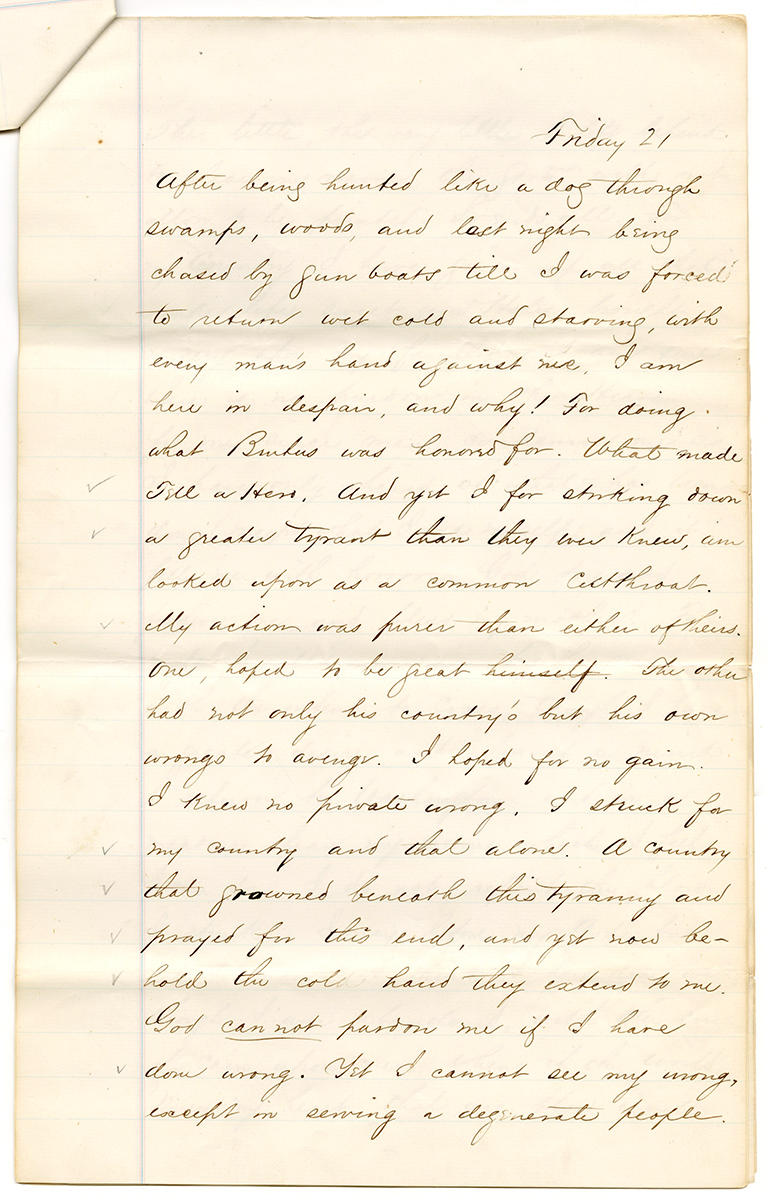 Friday 21
After being hunted like a dog through
swamps, woods, and last night being
chased by gun boats till I was forced
to return wet cold and starving, with
every man's hand against me, I am
here in despair, and why! For doing
what Brutus was honored for. What made
Tell a Hero. And yet I for striking down
a greater tyrant than they ever knew, am
looked upon as a common Cutthroat.
My action was purer than either of theirs.
One, hoped to be great himself. The other
had not only his country's but his own
wrongs to avenge. I hoped for no gain.
I knew no private wrong. I struck for
my country and that alone. A country
that growned beneath this tyranny and
prayed for this end, and yet now be-
hold the cold hand they extend to me.
God cannot pardon me if I have
done wrong. Yet I cannot see my wrong,
except in serving a degenerate people.